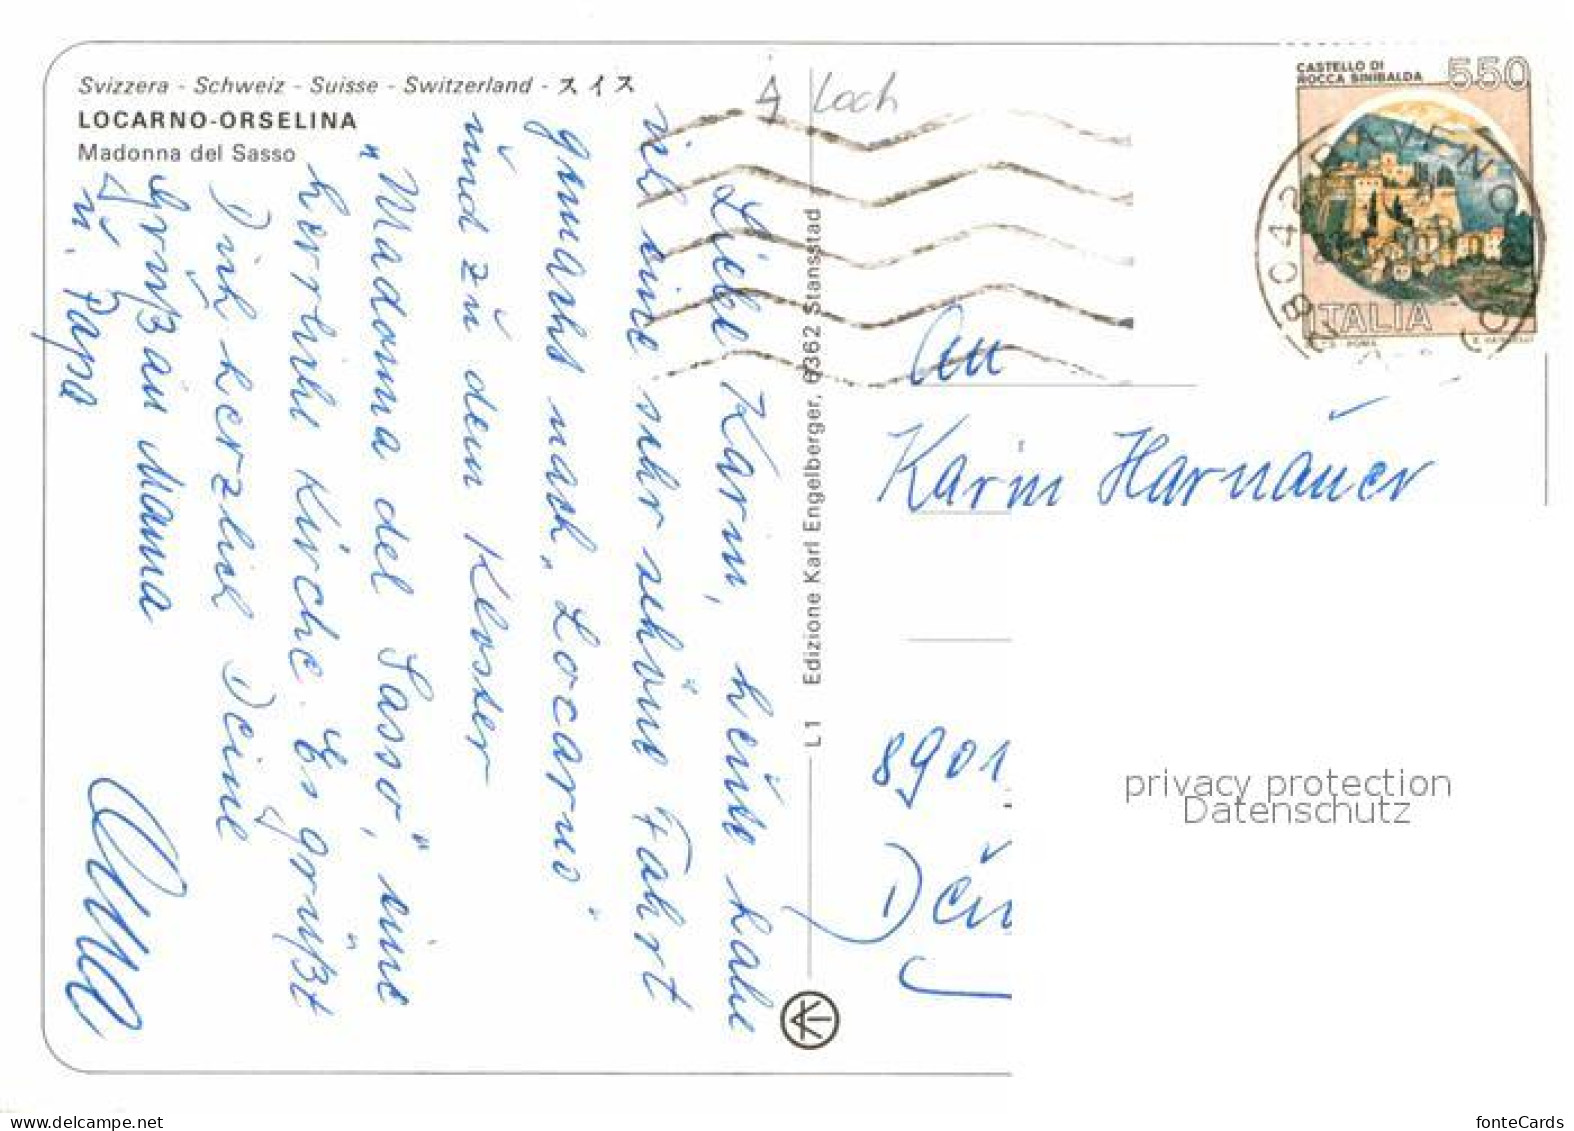 Svizzera - Schweiz - Suisse - Switzerland - スイス
LOCARNO-ORSELINA
Madonna del Sasso
Loch
CASTELLO DI
ROCCA SINIBALDA
550
ITALIA
ROMA
28042 BAVENO
Liebe Karin, heute habe
ich eine sehr schöne Fahrt
gemacht nach „Locarno"
und zu dem Kloster
"Madonna del Sasso", eine
herrliche Kirche. Es grüßt
Dich herzlich Deine
Oma
Grüße an Mama
u. Papa
L1 Edizione Karl Engelberger, 6362 Stansstad
An
Karin Harnauer
8901
privacy protection
Datenschutz
fonteCards